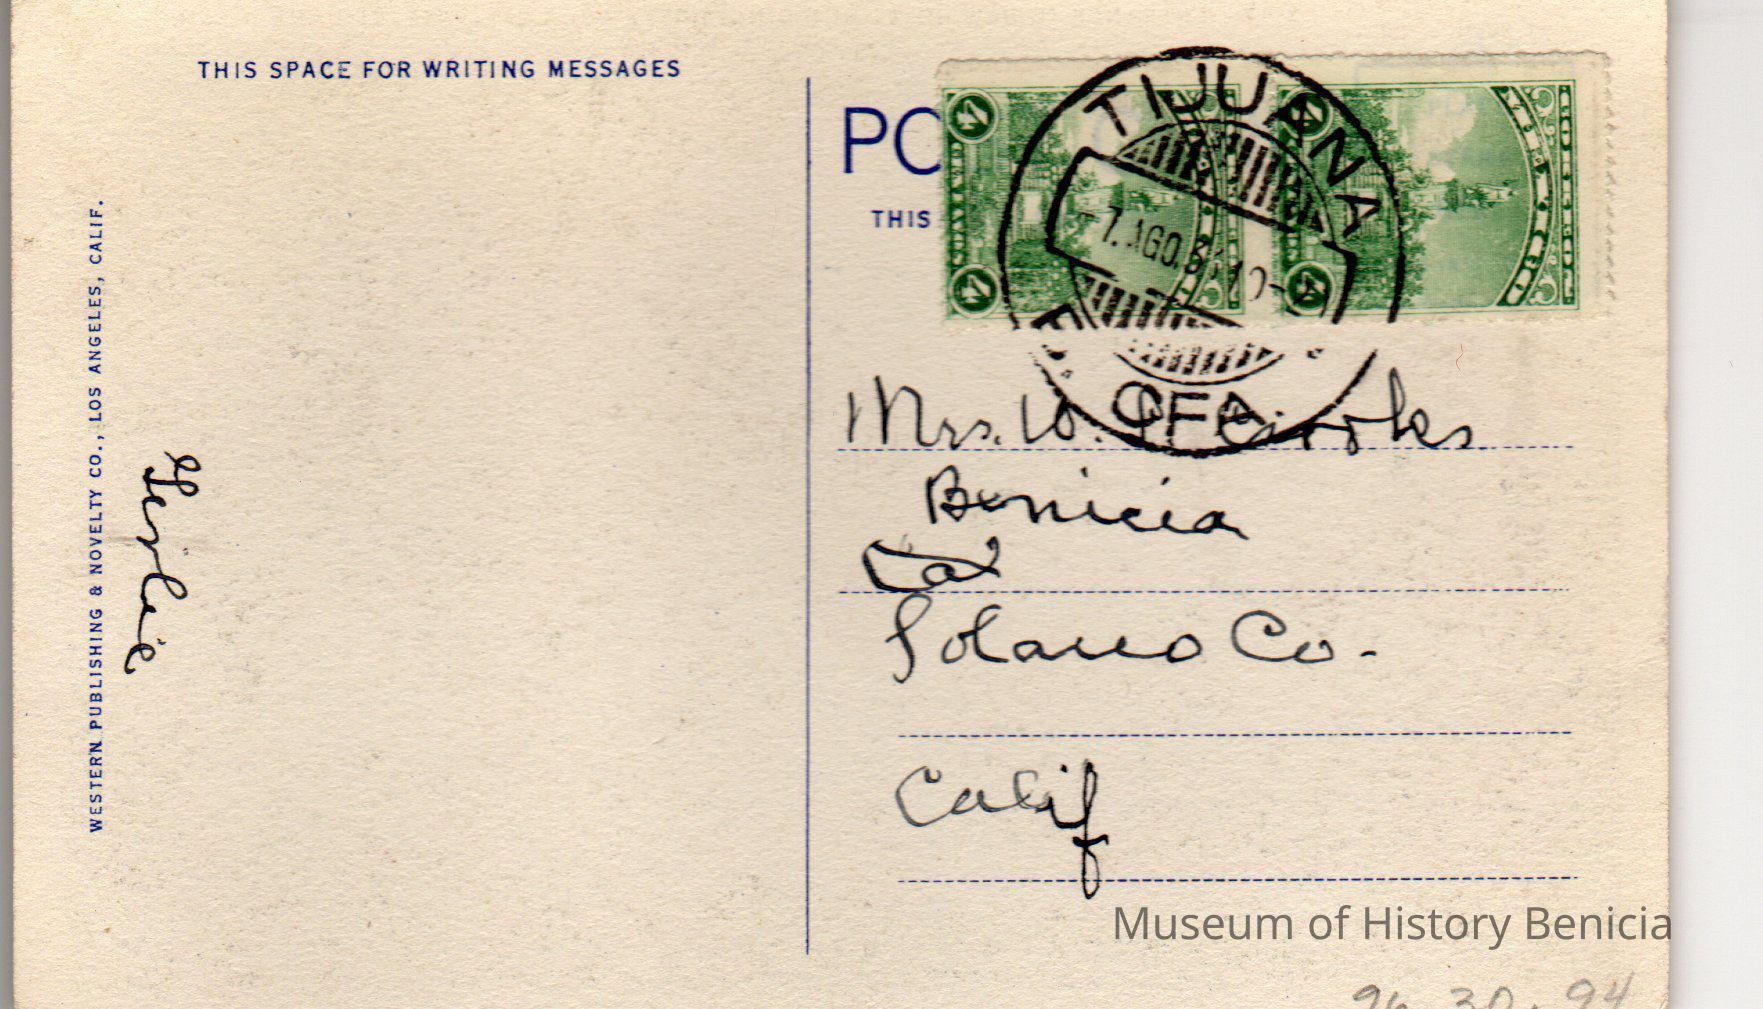 THIS SPACE FOR WRITING MESSAGES
WESTERN PUBLISHING & NOVELTY CO., LOS ANGELES, CALIF.
PO
THIS
TIJUANA
7. AGO. 3
10-
CFA
4
4
4
4
Mrs. W.
Benicia
Cal
Solano Co.
Calif
Museum of History Benicia
96.30.94